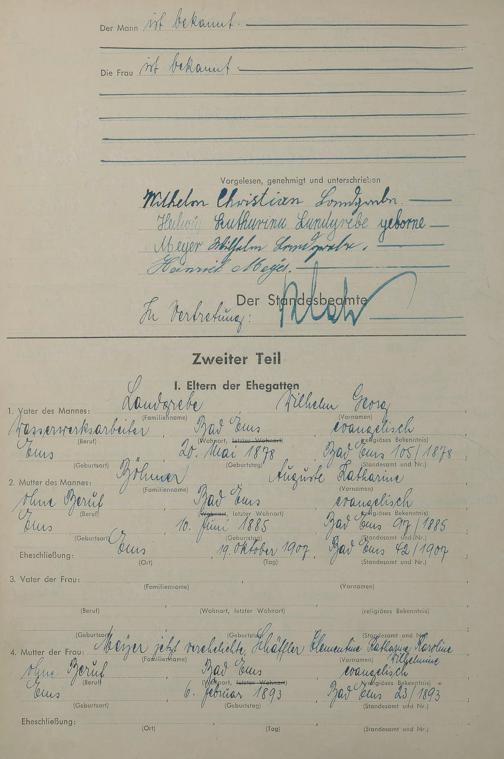 Der Mann ist bekannt.
Die Frau ist bekannt
Vorgelesen, genehmigt und unterschrieben
Wilhelm Christian Landgrebe.
Hedwig Katharina Landgrebe geborne
Meyer Wilhelm Landgrebe.
Heinrich Meyer.
Der Standesbeamte
In Vertretung:
Zweiter Teil
I. Eltern der Ehegatten
Landgrebe Wilhelm Georg
1. Vater des Mannes: (Familienname) (Vornamen)
Wasserwerksarbeiter Bad Ems evangelisch
(Beruf) (Wohnort, letzter Wohnort) (religiöses Bekenntnis)
Ems 20. Mai 1878 Bad Ems 105/1878
(Geburtsort) (Geburtstag) (Standesamt und Nr.)
Böhmer Auguste Katharine
2. Mutter des Mannes: (Familienname) (Vornamen)
ohne Beruf Bad Ems evangelisch
(Beruf) (Wohnort, letzter Wohnort) (religiöses Bekenntnis)
Ems 10. Juni 1885 Bad Ems 97/1885
(Geburtsort) (Geburtstag) (Standesamt und Nr.)
Eheschließung: Ems 19. Oktober 1907 Bad Ems 42/1907
(Ort) (Tag) (Standesamt und Nr.)
3. Vater der Frau:
(Familienname) (Vornamen)
(Beruf) (Wohnort, letzter Wohnort) (religiöses Bekenntnis)
(Geburtsort) (Geburtstag) (Standesamt und Nr.)
4. Mutter der Frau: Meyer jetzt verehelichte Schäffler Clementine Katharina Karoline
(Familienname) (Vornamen) Wilhelmine
ohne Beruf Bad Ems evangelisch
(Beruf) (Wohnort, letzter Wohnort) (religiöses Bekenntnis)
Ems 6. Februar 1893 Bad Ems 23/1893
(Geburtsort) (Geburtstag) (Standesamt und Nr.)
Eheschließung:
(Ort) (Tag) (Standesamt und Nr.)